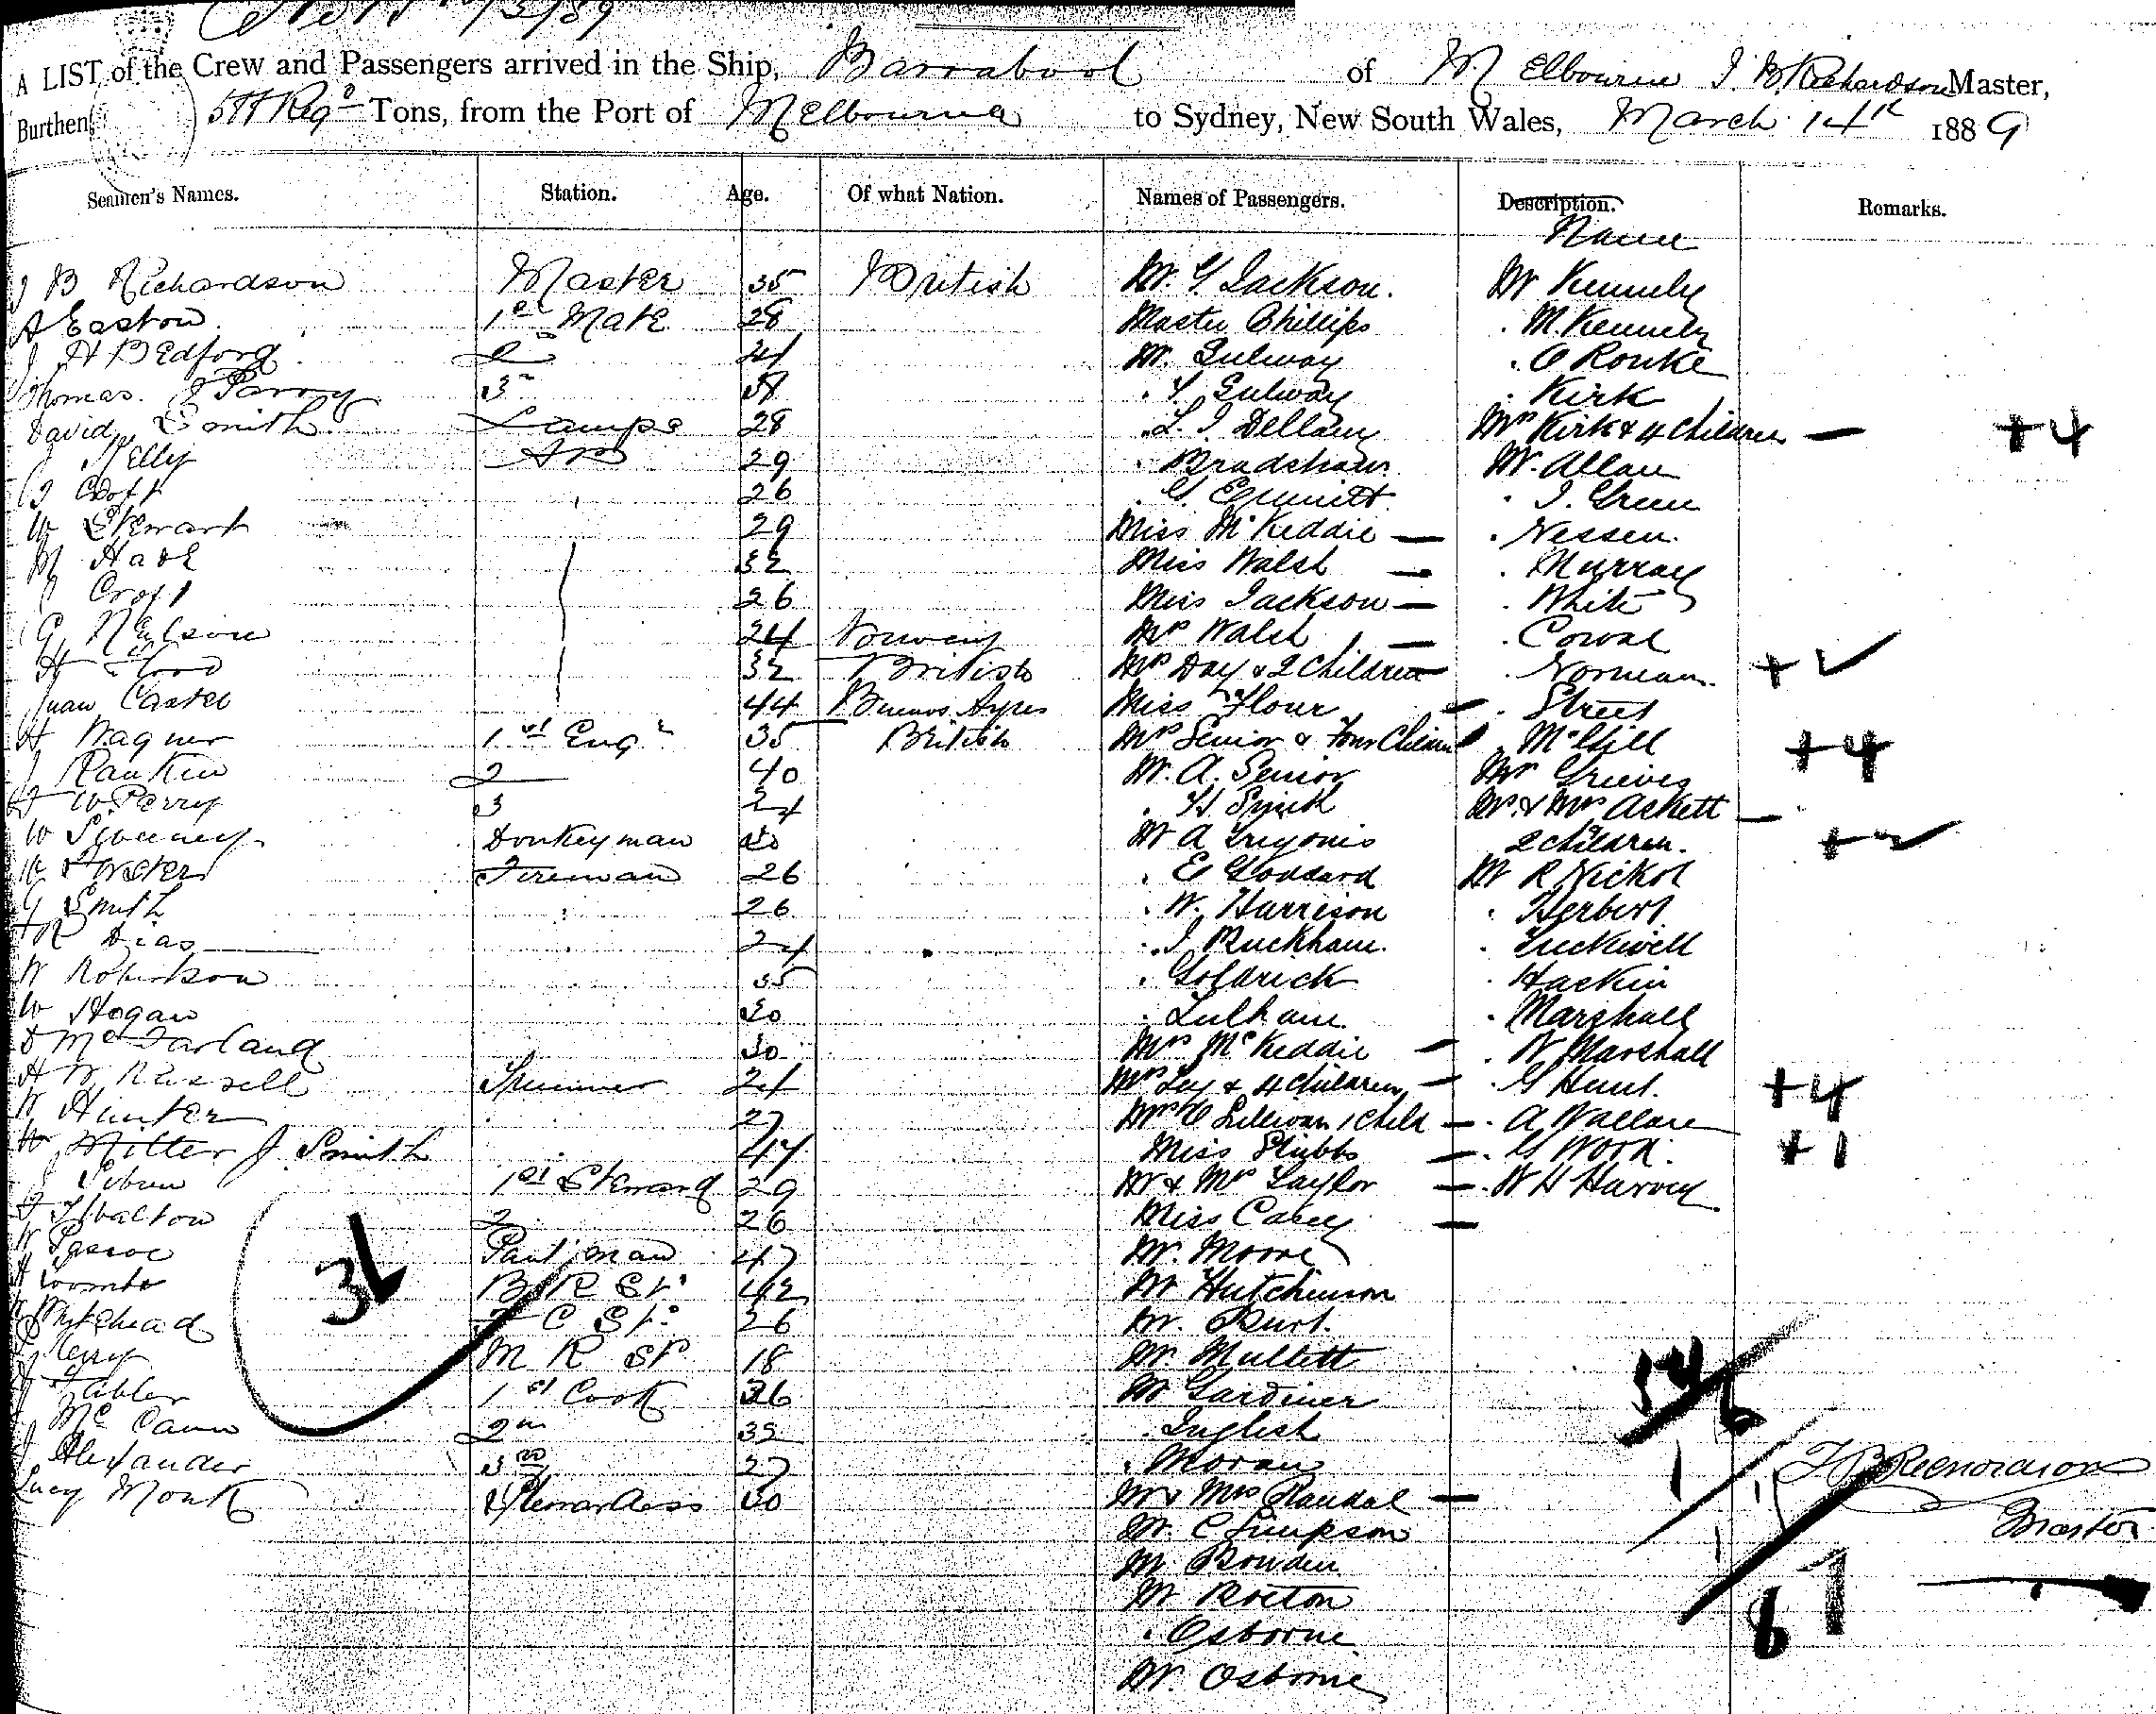 A LIST of the Crew and Passengers arrived in the Ship, Barrabool of Melbourne J. B. Richardson Master,
Burthen, Tons, from the Port of Melbourne to Sydney, New South Wales, March 14th 1889
Seamen's Names. Station. Age. Of what Nation. Names of Passengers. Description. Remarks.
Name
J B Richardson Master 35 British Mr. G. Jackson. Mr Kennely
A Easton 1st Mate 28 Master Phillips . M. Kennely
J. H Bedford 2 Mr. Gulway . O Rourke
Thomas J Parry 3rd . Gulway . Kirk
David Smith Lamps 28 . L. J. Dellany Mrs Kirk & 4 Children — +4
Kelly AB 29 . Bradshaw Mr. Allan
Croft 26 . G. Emmitt . J. Green
W Stewart 29 Miss McKeddie — . Nessen.
M 32 Miss Walsh — . Murray
Croft 26 Miss Jackson — . White
G Neilson 24 Norway Mrs Walsh — . Coral
H Flood 32 British Mrs Day & 2 Children — . Norman +2
Juan Castel 44 Buenos Ayres Miss Flour — . Street
H Wagner 1st Engr 35 British Mrs Senior & Four Children . McGill +4
J Rankin 2 40 Mr. A. Senior Mr Grieves
W Perry 3 24 . H. Mr & Mrs Ackett —
W Sweeney Donkeyman 30 Mr A 2 children. +2
W Forster Fireman 26 . E Goddard Mr R Nickol
G Smith 26 . W. Harrison . Herbert
Dias 24 . J Buckham . Luckwell
W Robertson 35 . Goldrick . Hackin
W Hogan 30 . Lulham . Marshall
D McFarland 30 Mrs McKeddie — . W Marshall
H W Russell Trimmer 24 Mrs Ley & 4 children — . G Hunt. +4
W Hunter 27 Mrs O'Sullivan 1 Child — . A Wallace
W Miller J. Smith 47 Miss Stubbs — . G Wood. +1
1st Steward 29 Mr & Mrs Taylor — . W H Harvey
Walton 2 26 Miss Casey —
W Pascoe Pantman 47 Mr. Moore
H Coombe B R St. 42 Mr Hutchinson
Whitehead F C St. 26 Mr. Burt.
Kerry M R St 18 Mr. Mullett
1st Cook 36 Mr Gardiner
J. McCann 2nd 35 . English
J Alexander 3rd 27 . Moran
Lucy Monk Stewardess 30 Mr & Mrs Randal —
Mr. C Simpson
Mr Bowden
Mr Boeton
. Osborne
Mr. Osborne
J B Richardson
Master